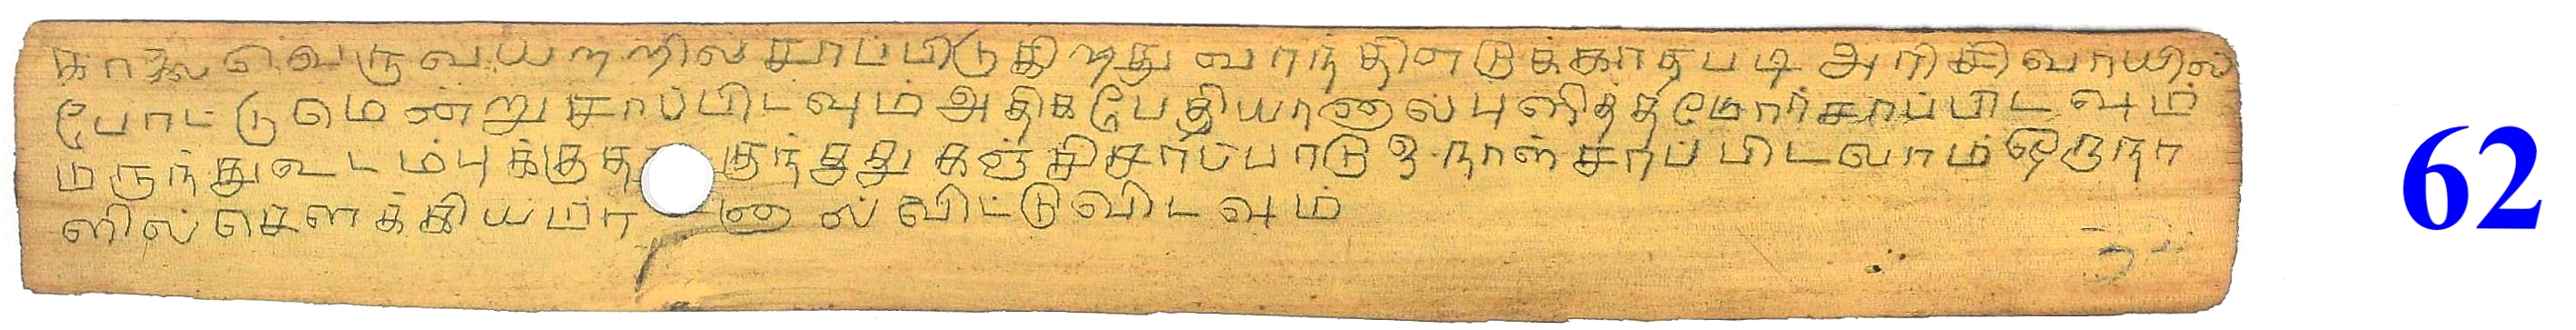 காலை வெருவயற்றில் சாப்பிடுகிறது வாந்தி எடுக்காதபடி அரிசி வாயில்
போட்டு மென்று சாப்பிடவும் அதிக பேதியானால் புளித்த மோர் சாப்பிடவும்
மருந்து உடம்புக்கு குந்தது கஞ்சி சாப்பாடு நாள் சாப்பிடலாம் ஒருநா
ளில் செளக்கியமானால் விட்டுவிடவும்
62